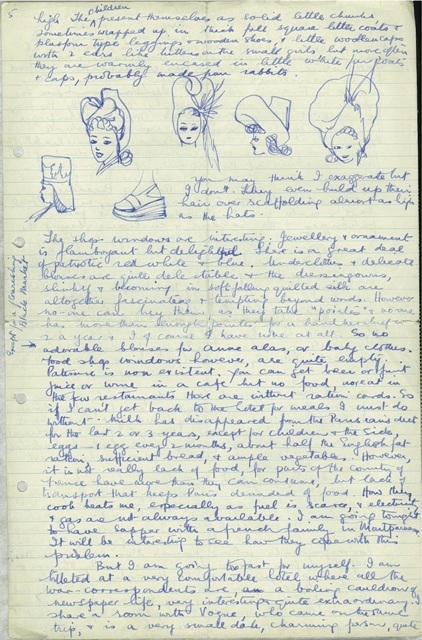 5
children
high. The present themselves as solid little chunks
sometimes wrapped up in thick felt square little coats &
type leggings & wooden shoes, & little woollen caps
with 2 ears like kittens on the small girls but more often
they are warmly encased in little white fur coats
& caps, probably made from rabbits.
you may think I exaggerate but
I don't. They even build up their
hair over scaffolding almost as high
as the hats.
The shops windows are interesting. Jewellery & ornament
is flamboyant but delightful. There is a great deal
of patriotic red white & blue. Underclothes & delicate
blouses are quite delectable & the dressing gowns,
slinky & becoming in soft falling quilted silk are
altogether fascinating & tempting beyond words. However
no-one can buy them as they take "points" & no-one
has more than enough points for a
2 a year & I of course have none at all. So no
adorable blouses for Anna alas, or baby clothes.
Food shop windows however, are quite empty.
Patisserie is non existent. You can get beer or fruit
juice or wine in a cafe but no food, nor eat in
the few restaurants there are without ration cards. So
if I can't get back to the hotel for meals I must do
without. Milk has disappeared from the Parisians diet
for the last 2 or 3 years, except for children & the sick.
eggs - 1 egg every 2 months, about half the English fat
ration, sufficient bread, & ample vegetables. However,
it is not really lack of food, for parts of the country of
France have more than they can consume, but lack of
transport that keeps Paris denuded of food. How they
cook beats me, especially as fuel is scarce, & electricity
& gas are not always available. I am going tonight
to have supper with a french family in Montparnasse.
It will be interesting to see how they cope with this
problem.
But I am going too fast for myself. I am
billeted at a very comfortable hotel where all the
war-correspondents are, a boiling cauldron of
newspaper life, very interesting & quite extraordinary. I
share a room with Vogue, who came on the same
trip, & is a very small date, charming person, quite
Black market